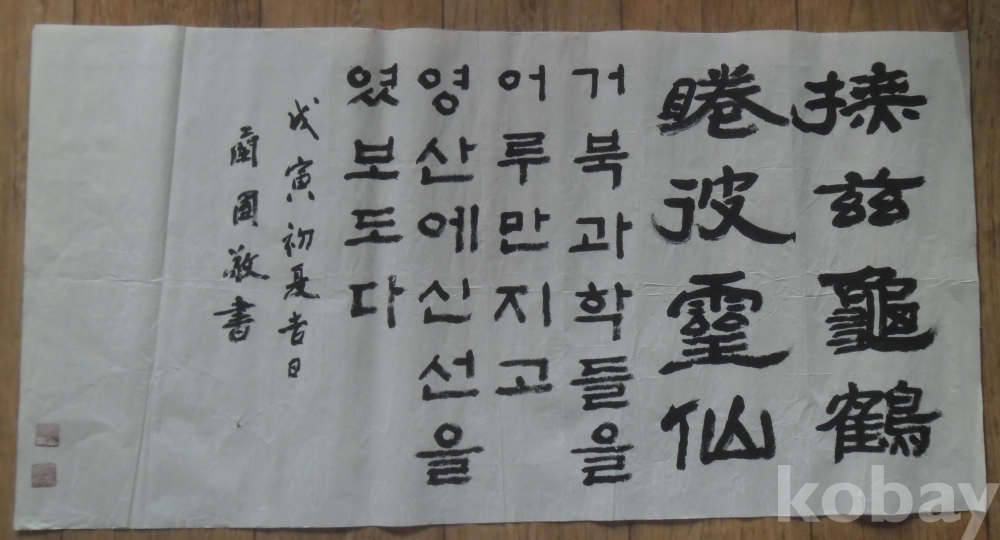 玆龜鶴
睠彼靈仙
거북과학들을
어루만지고
영산에신선을
였보도다
戊寅初夏吉日
蘭園敬書
kobay